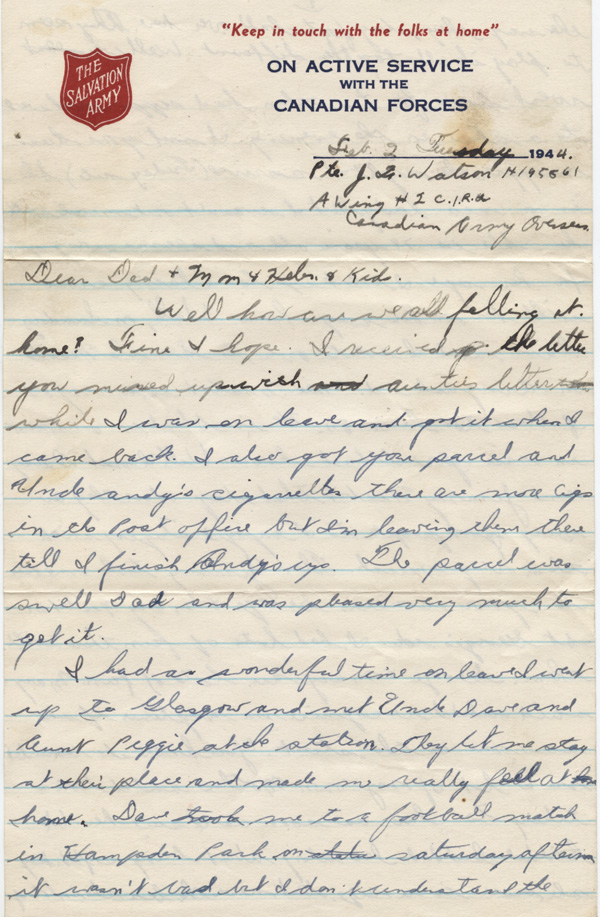 "Keep in touch with the folks at home"
THE
SALVATION
ARMY
ON ACTIVE SERVICE
WITH THE
CANADIAN FORCES
2 Tuesday 1944.
Pte. J. Watson H195861
A Wing # I C.I.R.U
Canadian Army Overseas
Dear Dad & Mom & Helen & Kids.
Well how are we all felling at
home? Fine I hope. I received the letter
you mixed up with and aunties letter
while I was on leave and got it when I
came back. I also got your parcel and
Uncle andy's cigarrettes there are more cigs
in the Post office but I'm leaving them there
till I finish Andy's cigs. The parcel was
swell Dad and was pleased very much to
get it.
I had a wonderful time on leave I went
up to Glasgow and met Uncle Dave and
Aunt Peggie at the station. They let me stay
at their place and made me really feel at
home. Dave took me to a football match
in Hampden Park on saturday afternoon
it wasn't bad but I don't understand the